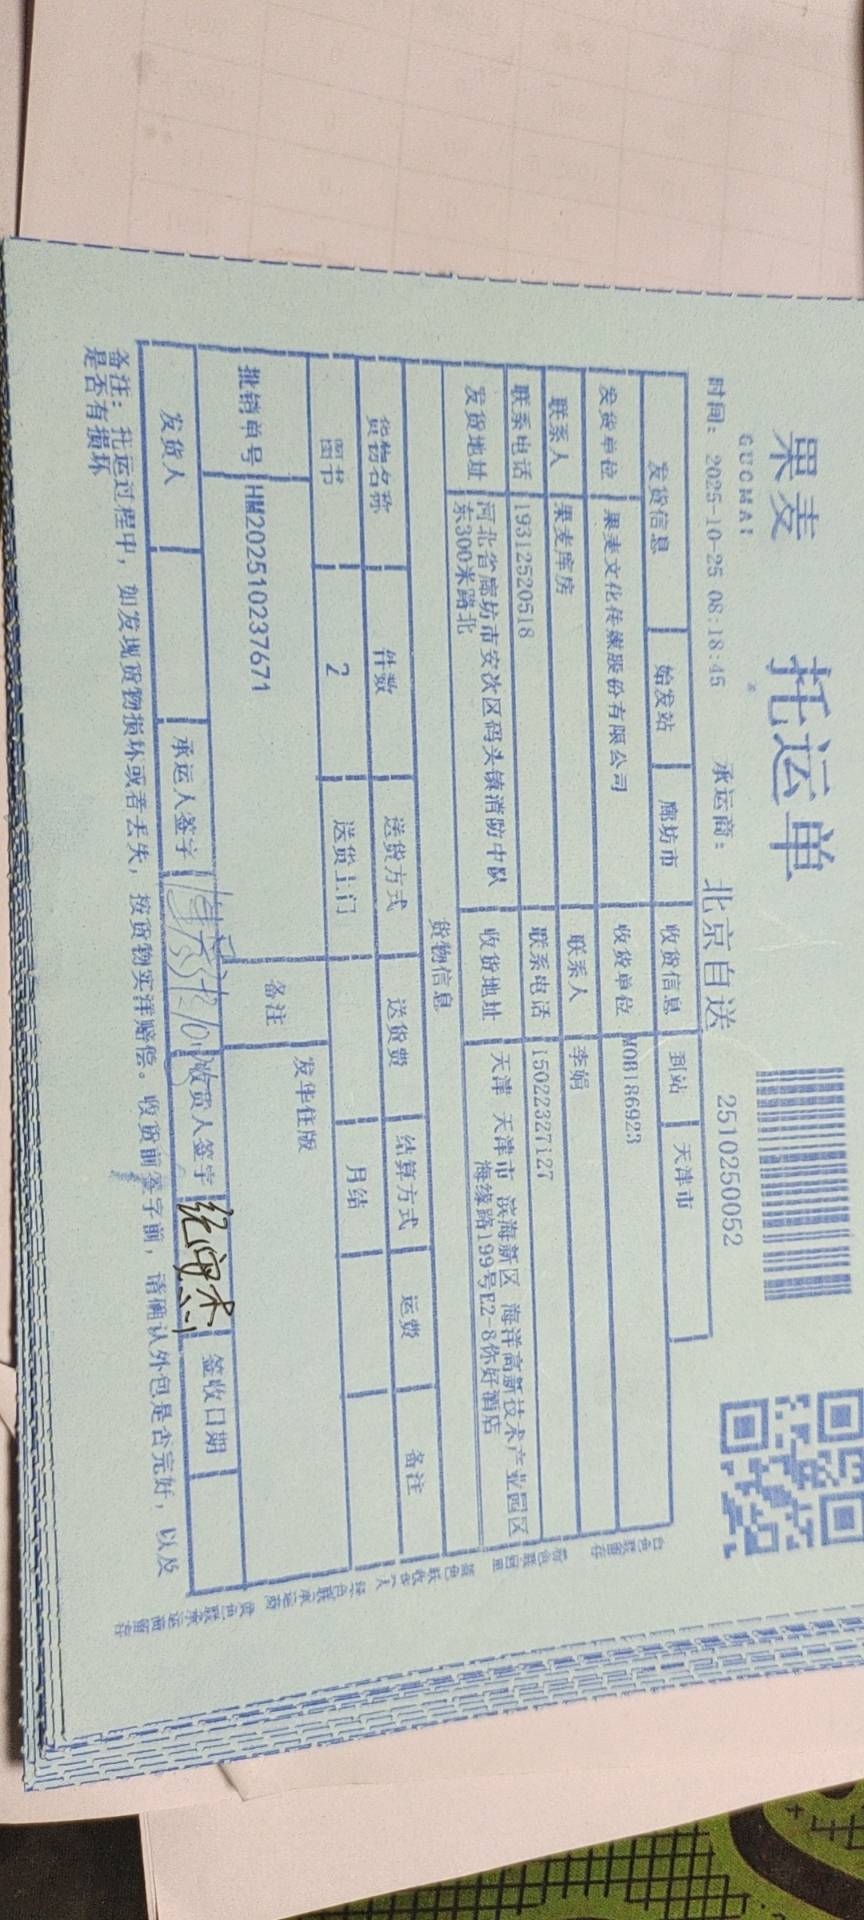 果麦 托运单
GUOMAI
时间: 2025-10-25 08:18:45 承运商: 北京自送 2510250052
发货信息 始发站 廊坊市 收货信息 到站 天津市
发货单位 果麦文化传媒股份有限公司 收货单位 MOB186923
联系人 果麦库房 联系人 李娟
联系电话 19312520518 联系电话 15022327127
发货地址 河北省廊坊市安次区码头镇消防中队 收货地址 天津 天津市 滨海新区 海洋高新技术产业园区
东300米路北 海缘路199号E2-8你好酒店
货物信息
货物名称 件数 送货方式 送货费 结算方式 运费 备注
图书 2 送货上门 月结
批销单号 HM202510237671 备注 发华住版
发货人 承运人签字 收货人签字 签收日期
备注: 托运过程中, 如发现货物损坏或者丢失, 按货物实洋赔偿。收货前签字前, 请确认外包是否完好, 以及
是否有损坏